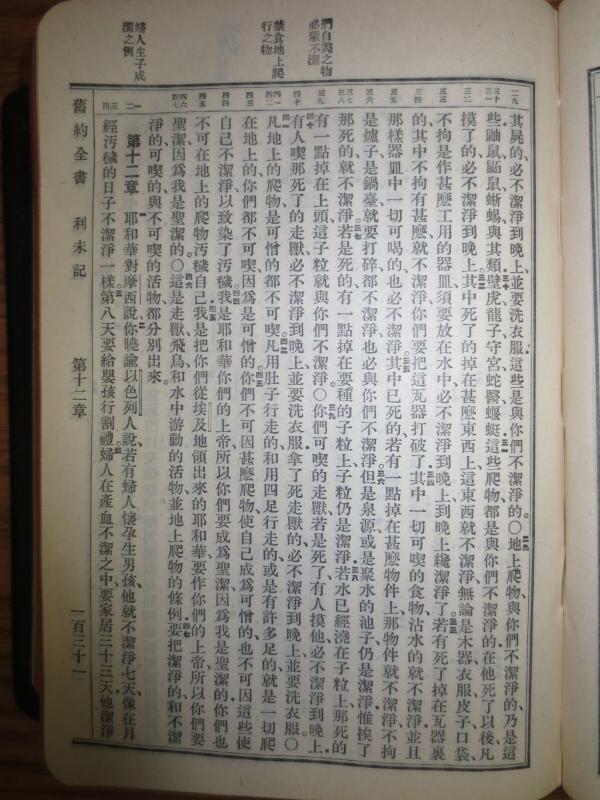 捫自斃之物
必蒙不潔
禁食地上爬
行之物
婦人生子成
潔之例
二九
三十 三一
三二
三三
三四
三五
三六
三七 三八
三九
四十
四一 四二
四三
四四
四五
四六 四七
一 二
三 四
其屍的、必不潔淨到晚上、並要洗衣服、這些是與你們不潔淨的。〇地上爬物、與你們不潔淨的、乃是這
些鼬鼠、鼫鼠、蜥蜴、與其類、壁虎、龍子、守宮、蛇醫、蝘蜓、這些爬物、都是與你們不潔淨的、在他死了以後、凡
摸了的、必不潔淨到晚上、其中死了的、掉在甚麽東西上、這東西就不潔淨、無論是木器、衣服、皮子、口袋、
不拘是作甚麽工用的器皿、須要放在水中、必不潔淨到晚上、到晚上纔潔淨了、若有死了掉在瓦器裏
的、其中不拘有甚麽、就不潔淨、你們要把這瓦器打破了、其中一切可喫的食物、沾水的就不潔淨、並且
那樣器皿中一切可喝的、也必不潔淨、其中已死的、若有一點掉在甚麽物件上、那物件就不潔淨、不拘
是爐子、是鍋臺、就要打碎、都不潔淨、也必與你們不潔淨、但是泉源、或是聚水的池子、仍是潔淨、惟挨了
那死的、就不潔淨、若是死的有一點掉在要種的子粒上、子粒仍是潔淨、若水已經澆在子粒上、那死的
有一點掉在上頭、這子粒就與你們不潔淨〇你們可喫的走獸、若是死了、有人摸他、必不潔淨到晚上、
有人喫那死了的走獸、必不潔淨到晚上、並要洗衣服、拿了死走獸的、必不潔淨到晚上、並要洗衣服〇
凡地上的爬物、是可憎的、都不可喫、凡用肚子行走的、和用四足行走的、或是有許多足的、就是一切爬
在地上的、你們都不可喫、因爲是可憎的、你們不可因甚麽爬物、使自己成爲可憎的、也不可因這些使
自己不潔淨、以致染了汚穢、我是耶和華你們的上帝、所以你們要成爲聖潔、因爲我是聖潔的、你們也
不可在地上的爬物汚穢自己、我是把你們從埃及地領出來的耶和華、要作你們的上帝、所以你們要
聖潔、因爲我是聖潔的。〇這是走獸、飛鳥、和水中游動的活物、並地上爬物的條例、要把潔淨的和不潔
淨的、可喫的與不可喫的活物、都分別出來。
第十二章 耶和華對摩西說、你曉諭以色列人說、若有婦人懷孕生男孩、他就不潔淨七天、像在月
經汚穢的日子不潔淨一樣、第八天要給嬰孩行割禮、婦人在產血不潔之中、要家居三十三天、他潔淨
舊約全書 利未記 第十二章 一百三十一